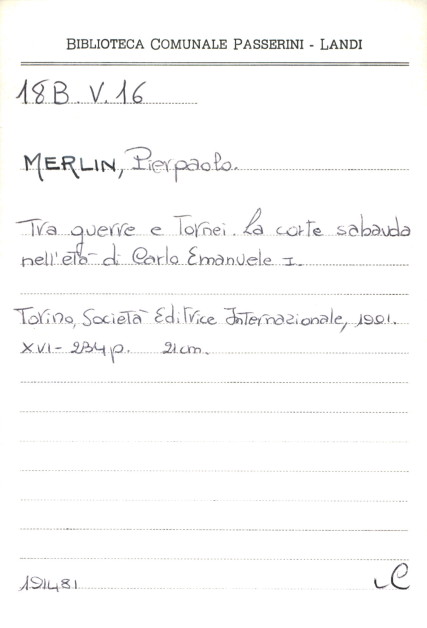 BIBLIOTECA COMUNALE PASSERINI - LANDI
18B. V. 16
MERLIN, Pierpaolo.
Tra guerre e Tornei. La corte sabauda
nell'età di Carlo Emanuele I.
Torino, Società Editrice Internazionale, 1991.
XVI- 234p. 21cm.
191481